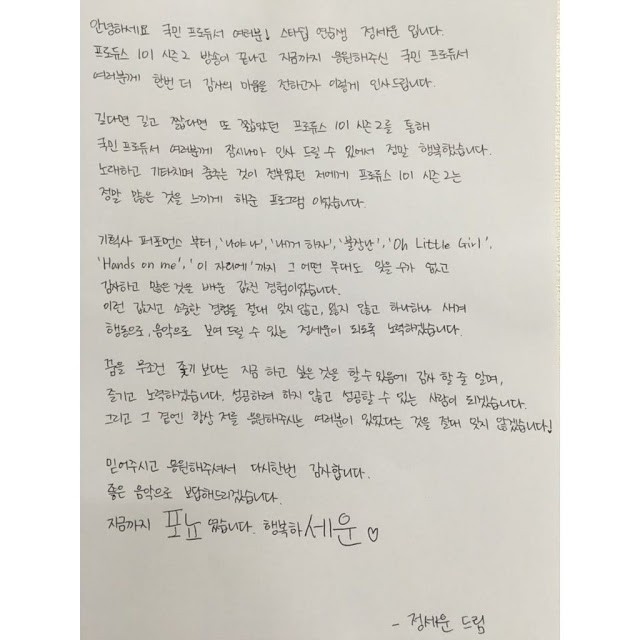 안녕하세요 국민 프로듀서 여러분! 스타쉽 연습생 정세운 입니다.
프로듀스 101 시즌2 방송이 끝나고 지금까지 응원해주신 국민 프로듀서
여러분께 한번 더 감사의 마음을 전하고자 이렇게 인사드립니다.
길다면 길고 짧다면 또 짧았던 프로듀스 101 시즌2를 통해
국민 프로듀서 여러분께 잠시나마 인사 드릴 수 있어서 정말 행복했습니다.
노래하고 기타치며 춤추는 것이 전부였던 저에게 프로듀스 101 시즌2는
정말 많은 것을 느끼게 해준 프로그램 이었습니다.
기획사 퍼포먼스 부터, '나야 나', '내꺼 하자', '불장난', 'Oh Little Girl',
'Hands on me', '이 자리에' 까지 그 어떤 무대도 잊을 수가 없고
감사하고 많은 것을 배운 값진 경험이었습니다.
이런 값지고 소중한 경험들 절대 잊지 않고, 잃지 않고 하나하나 새겨
행동으로, 음악으로 보여 드릴 수 있는 정세운이 되도록 노력하겠습니다.
꿈을 무조건 좇기 보다는 지금 하고 싶은 것을 할 수 있음에 감사 할 줄 알며,
즐기고 노력하겠습니다. 성공하려 하지 않고 성공할 수 있는 사람이 되겠습니다.
그리고 그 곁엔 항상 저를 응원해주시는 여러분이 있었다는 것을 절대 잊지 않겠습니다!
믿어주시고 응원해주셔서 다시한번 감사합니다.
좋은 음악으로 보답해드리겠습니다.
지금까지 포뇨 였습니다. 행복하세운♡
- 정세운 드림